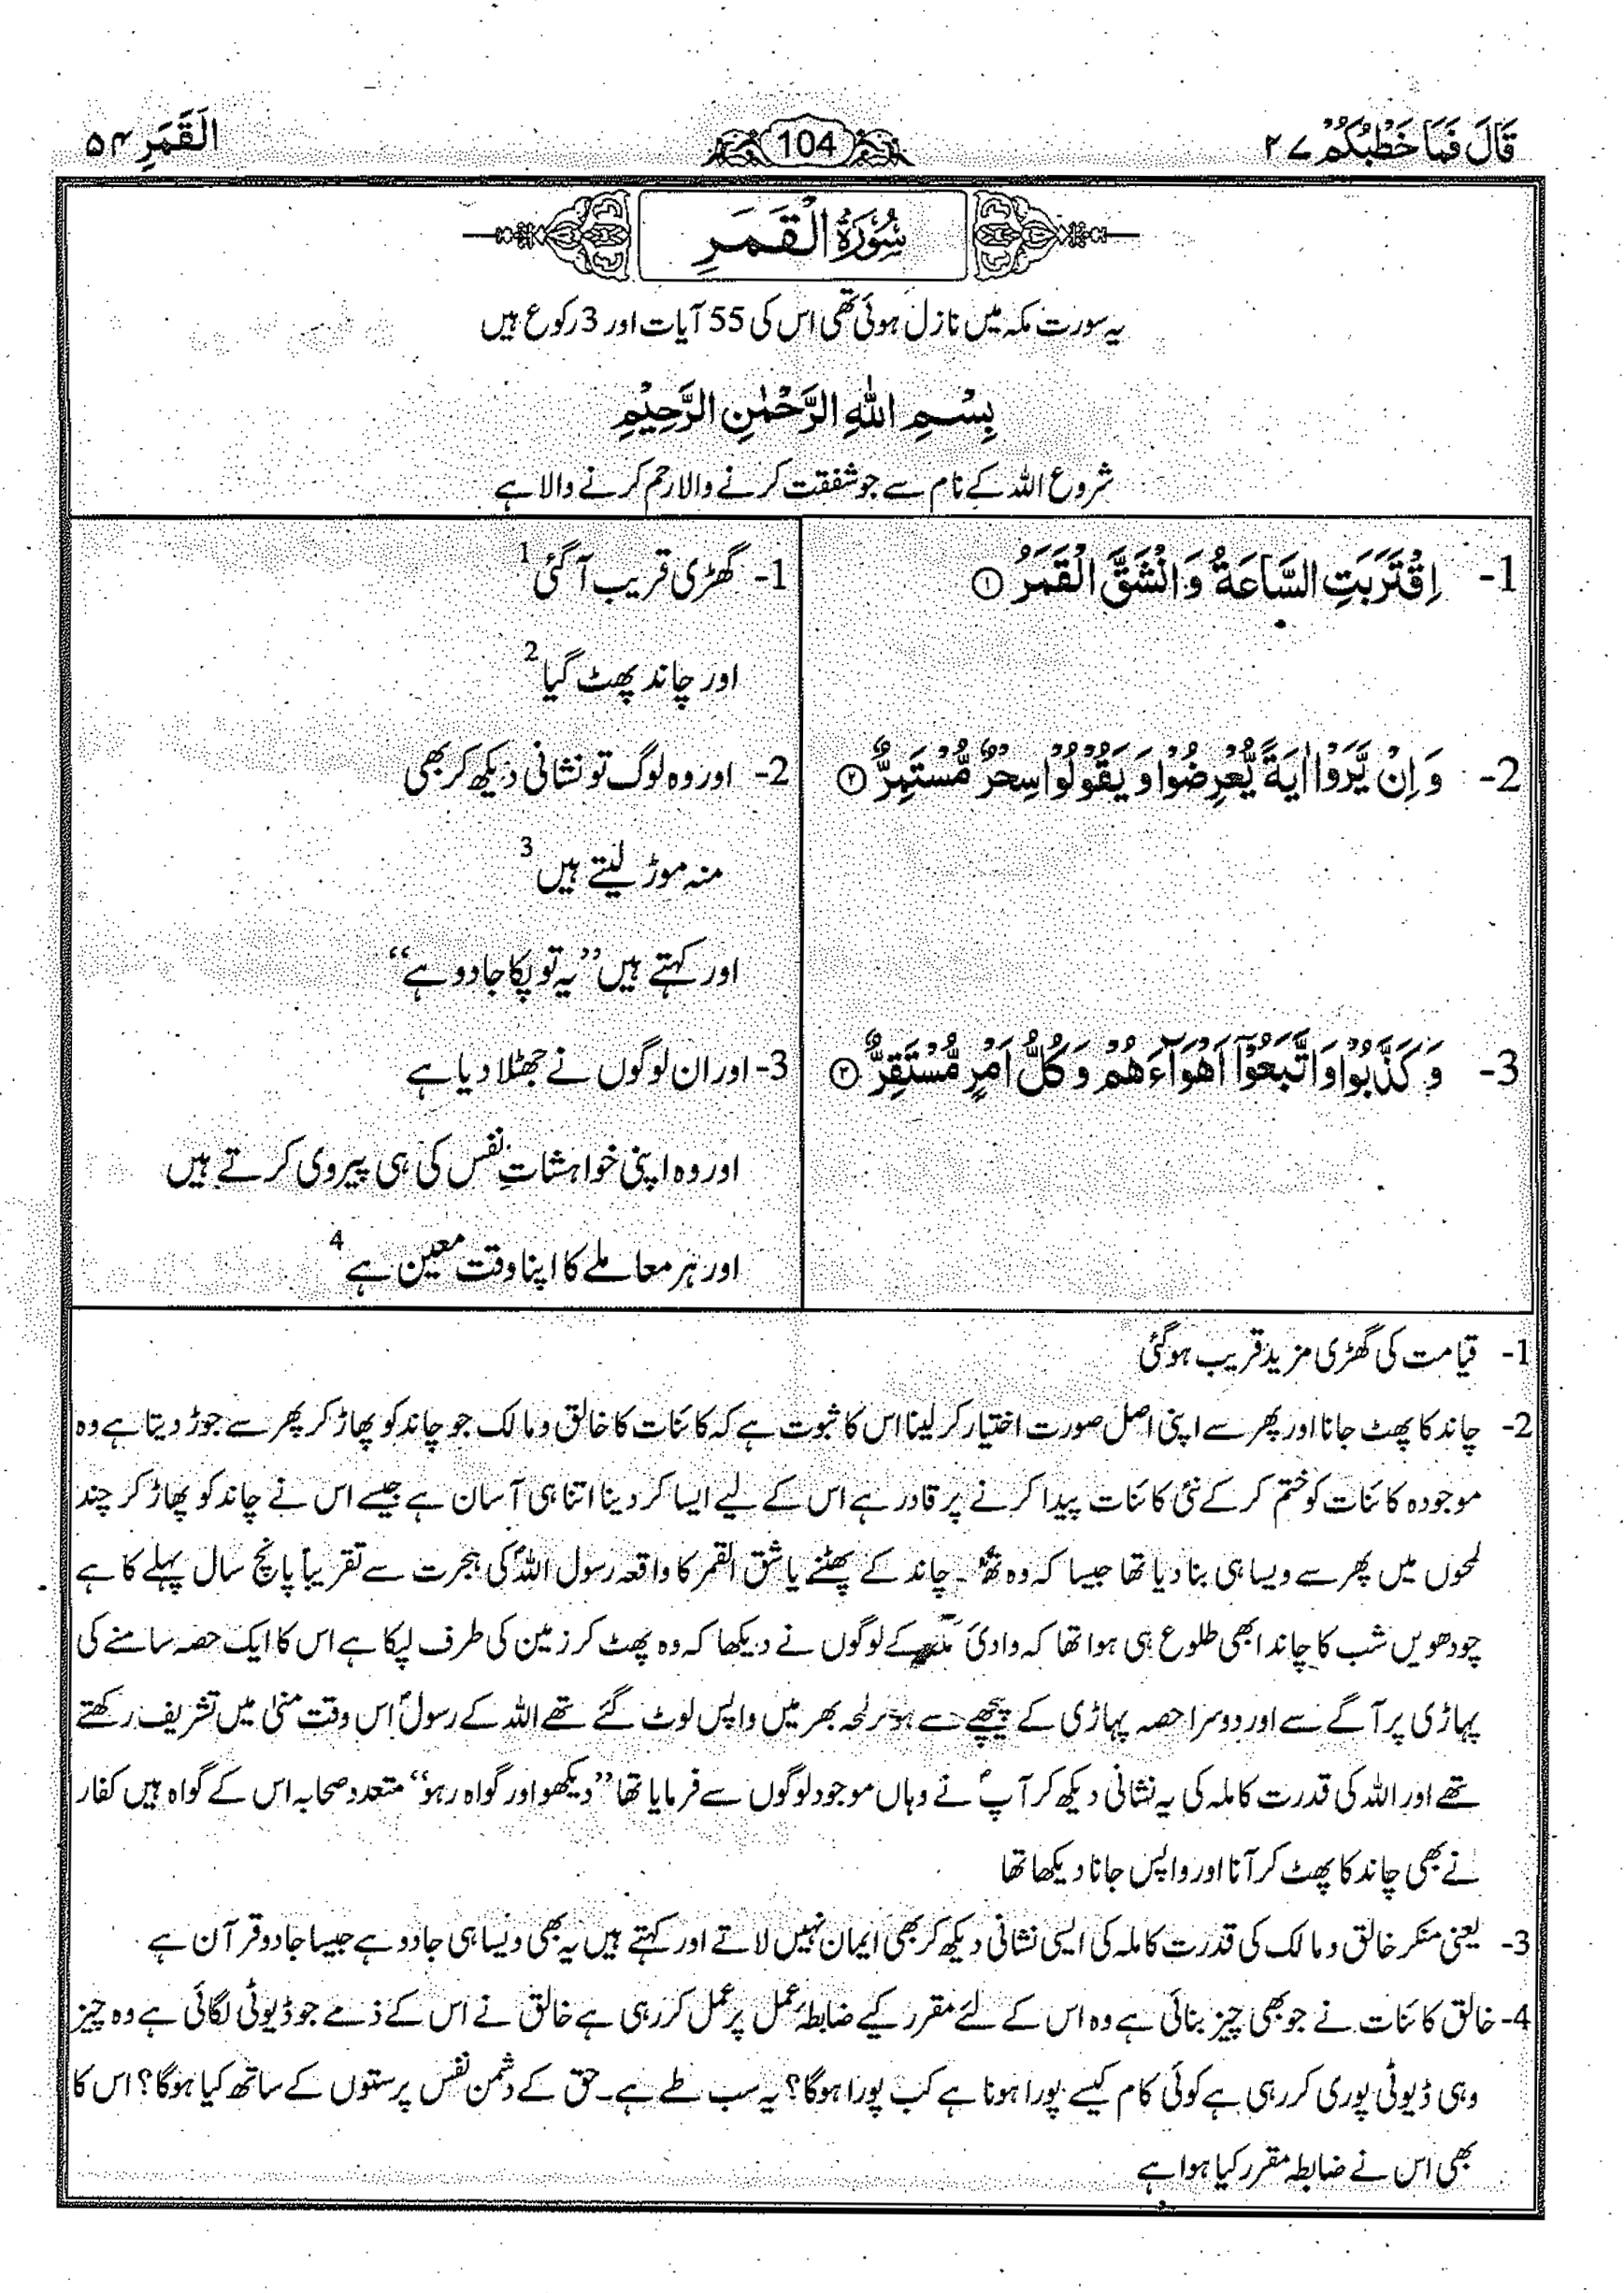 قَالَ فَمَا خَطْبُكُمْ ٢٧
104
اَلْقَمَرِ ۵۴
سُوْرَةُ الْقَمَرِ
یہ سورت مکہ میں نازل ہوئی تھی اس کی 55 آیات اور 3 رکوع ہیں
بِسْمِ اللّٰهِ الرَّحْمٰنِ الرَّحِیْمِ
شروع اللہ کے نام سے جو شفقت کرنے والا رحم کرنے والا ہے
1- اِقْتَرَبَتِ السَّاعَةُ وَ انْشَقَّ الْقَمَرُ ①
1- گھڑی قریب آ گئی 1
اور چاند پھٹ گیا 2
2- وَ اِنْ یَّرَوْا اٰیَةً یُّعْرِضُوْا وَ یَقُوْلُوْا سِحْرٌ مُّسْتَمِرٌّ ②
2- اور وہ لوگ تو نشانی دیکھ کر بھی
منہ موڑ لیتے ہیں 3
اور کہتے ہیں ’’یہ تو پکا جادو ہے‘‘
3- وَ كَذَّبُوْا وَ اتَّبَعُوْۤا اَهْوَآءَهُمْ وَ كُلُّ اَمْرٍ مُّسْتَقِرٌّ ③
3- اور ان لوگوں نے جھٹلا دیا ہے
اور وہ اپنی خواہشاتِ نفس کی ہی پیروی کرتے ہیں
اور ہر معاملے کا اپنا وقت معین ہے 4
1- قیامت کی گھڑی مزید قریب ہو گئی
2- چاند کا پھٹ جانا اور پھر سے اپنی اصل صورت اختیار کر لینا اس کا ثبوت ہے کہ کائنات کا خالق و مالک جو چاند کو پھاڑ کر پھر سے جوڑ دیتا ہے وہ
موجودہ کائنات کو ختم کر کے نئی کائنات پیدا کرنے پر قادر ہے اس کے لیے ایسا کر دینا اتنا ہی آسان ہے جیسے اس نے چاند کو پھاڑ کر چند
لمحوں میں پھر سے ویسا ہی بنا دیا تھا جیسا کہ وہ تھا۔ چاند کے پھٹنے یا شق القمر کا واقعہ رسول اللہؐ کی ہجرت سے تقریباً پانچ سال پہلے کا ہے
چودھویں شب کا چاند ابھی طلوع ہی ہوا تھا کہ وادیٔ مکہ کے لوگوں نے دیکھا کہ وہ پھٹ کر زمین کی طرف لپکا ہے اس کا ایک حصہ سامنے کی
پہاڑی پر آگے سے اور دوسرا حصہ پہاڑی کے پیچھے سے ہو کر لمحہ بھر میں واپس لوٹ گئے تھے اللہ کے رسولؐ اس وقت منیٰ میں تشریف رکھتے
تھے اور اللہ کی قدرت کاملہ کی یہ نشانی دیکھ کر آپؐ نے وہاں موجود لوگوں سے فرمایا تھا ’’دیکھو اور گواہ رہو‘‘ متعدد صحابہ اس کے گواہ ہیں کفار
نے بھی چاند کا پھٹ کر آنا اور واپس جانا دیکھا تھا
3- یعنی منکر خالق و مالک کی قدرت کاملہ کی ایسی نشانی دیکھ کر بھی ایمان نہیں لاتے اور کہتے ہیں یہ بھی ویسا ہی جادو ہے جیسا جادو قرآن ہے
4- خالق کائنات نے جو بھی چیز بنائی ہے وہ اس کے لئے مقرر کیے ضابطۂ عمل پر عمل کر رہی ہے خالق نے اس کے ذمے جو ڈیوٹی لگائی ہے وہ چیز
وہی ڈیوٹی پوری کر رہی ہے کوئی کام کیسے پورا ہونا ہے کب پورا ہو گا؟ یہ سب طے ہے۔ حق کے دشمن نفس پرستوں کے ساتھ کیا ہو گا؟ اس کا
بھی اس نے ضابطہ مقرر کیا ہوا ہے